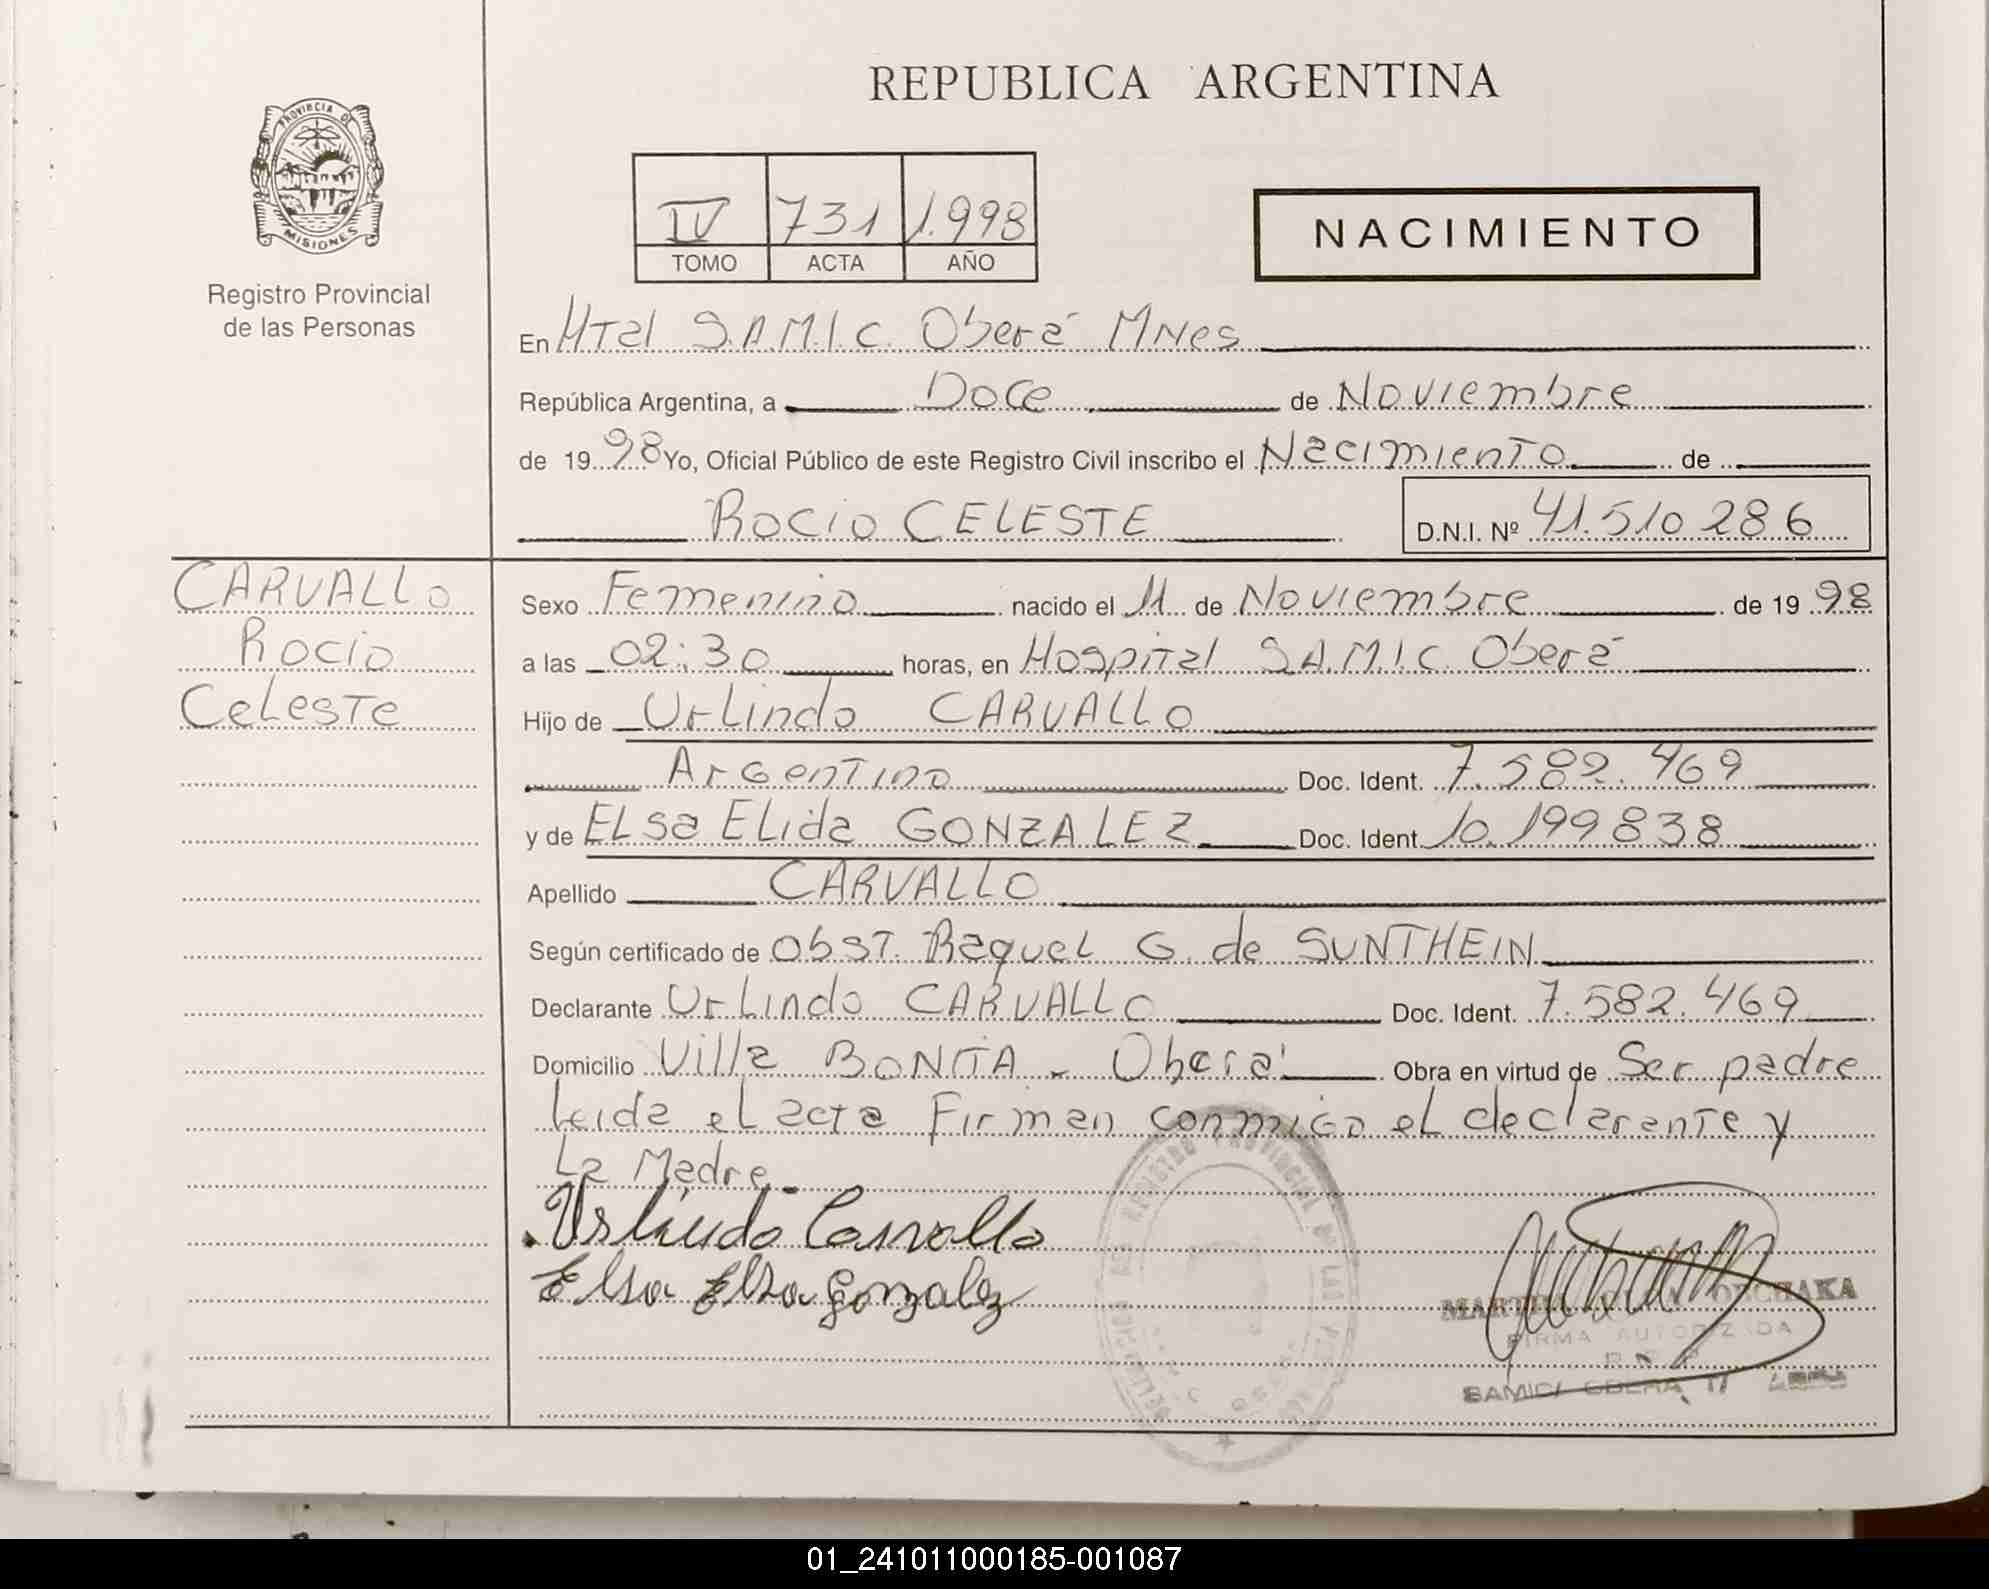 REPUBLICA ARGENTINA
PROVINCIA DE
MISIONES
Registro Provincial
de las Personas
IV 731 1.998
TOMO ACTA AÑO
NACIMIENTO
En HTal S.A.M.I.C. Oberá MNes
República Argentina, a Doce de Noviembre
de 1998 Yo, Oficial Público de este Registro Civil inscribo el Nacimiento de
ROCIO CELESTE D.N.I. Nº 41.510 286
CARVALLO
Rocio
Celeste
Sexo Femenino nacido el 11 de Noviembre de 1998
a las 02:30 horas, en Hospital S.A.M.I.C. Oberá
Hijo de Urlindo CARVALLO
Argentino Doc. Ident. 7.582.469
y de Elsa Elida GONZALEZ Doc. Ident. 10.199838
Apellido CARVALLO
Según certificado de Obst. Raquel G. de SUNTHEIN
Declarante Urlindo CARVALLO Doc. Ident. 7.582.469
Domicilio Villa BONITA - Oberá Obra en virtud de Ser padre
Leida el acta Firman conmigo el declarante y
La Madre.-
Urlindo Carvallo
Elsa Elsa Gonzalez
REGISTRO PROVINCIAL DE LAS
FIRMA AUTORIZADA
SAMIC/ OBERA
01_241011000185-001087